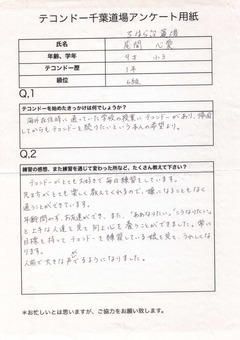 テコンドー千葉道場アンケート用紙
ちはら台道場
氏名
尾間 心愛
年齢、学年
9才 小3
テコンドー歴
1年
級位
6級
Q,1
テコンドーを始めたきっかけは何でしょうか?
海外在住時に通っていた学校の授業にテコンドーがあり、帰国
してからもテコンドーを続けたいという本人の希望より。
Q,2
練習の感想、また練習を通じて変わった所など、たくさん教えて下さい?
テコンドーがとても大好きで毎回練習をしています。
先生方がとても楽しく教えてくれるので、嫌になることもなく
通うことができています。
年齢問わず、お友達ができ、また、"ああなりたい。""こうなりたい"
と上手な人達を見て向上心を養うことができました。常に
目標を持ってテコンドーを練習している娘を見て、うれしくな
ります。
人前で大きな声でるようになりました。
*お忙しいとは思いますが、ご協力をお願い致します。